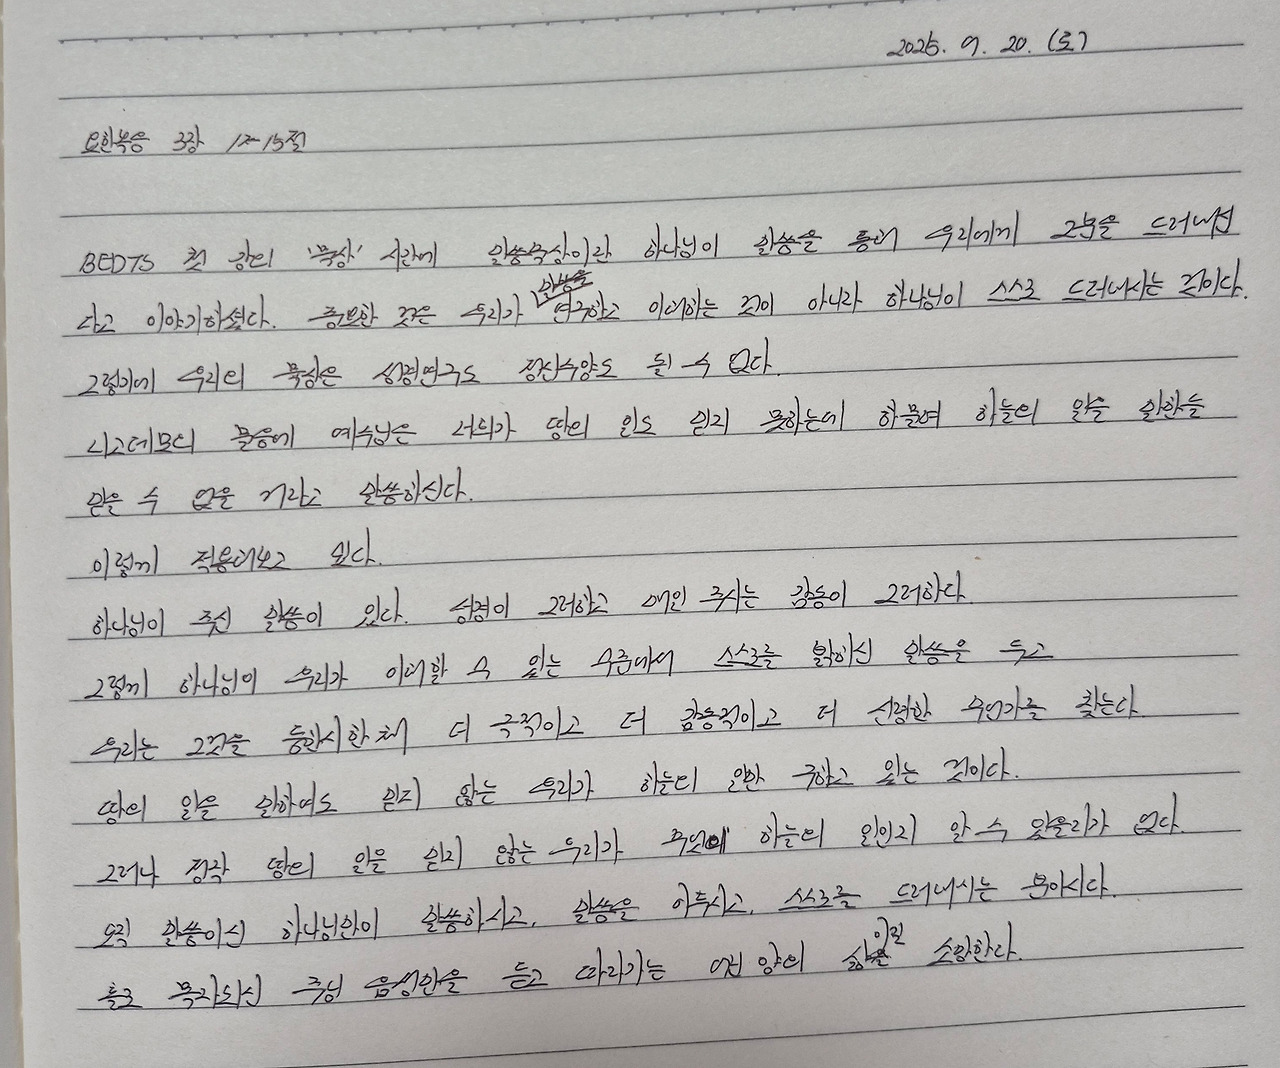 2025. 9. 20. (토)
요한복음 3장 12-15절
BEDTS 첫 강의 '묵상' 시간에 말씀묵상이란 하나님이 말씀을 통해 우리에게 그분을 드러내신
다고 이야기하셨다. 중요한 것은 우리가 연구하고 이해하는 것이 아니라 하나님이 스스로 드러내시는 것이다.
그렇기에 우리의 묵상은 성경연구도 정신수양도 될 수 없다.
니고데모의 물음에 예수님은 너희가 땅의 일도 믿지 못하는데 하물며 하늘의 일을 말한들
믿을 수 없을 거라고 말씀하신다.
이렇게 적용해보고 싶다.
하나님이 주신 말씀이 있다. 성경이 그러하고 매일 주시는 감동이 그러하다
그렇게 하나님이 우리가 이해할 수 있는 수준에서 스스로를 밝히신 말씀을 두고
우리는 그것을 등한시한채 더 극적이고 더 감동적이고 더 신령한 무언가를 찾는다.
땅의 일을 말하여도 믿지 않는 우리가 하늘의 일만 구하고 있는 것이다.
그러나 정작 땅의 일을 믿지 않는 우리가 무엇이 하늘의 일인지 알 수 있을리가 없다.
오직 말씀이신 하나님만이 말씀하시고, 말씀을 이루시고, 스스로를 드러내시는 분이시다.
홀로 목자되신 주님 음성만을 듣고 따라가는 어린 양의 삶이길 소망한다.